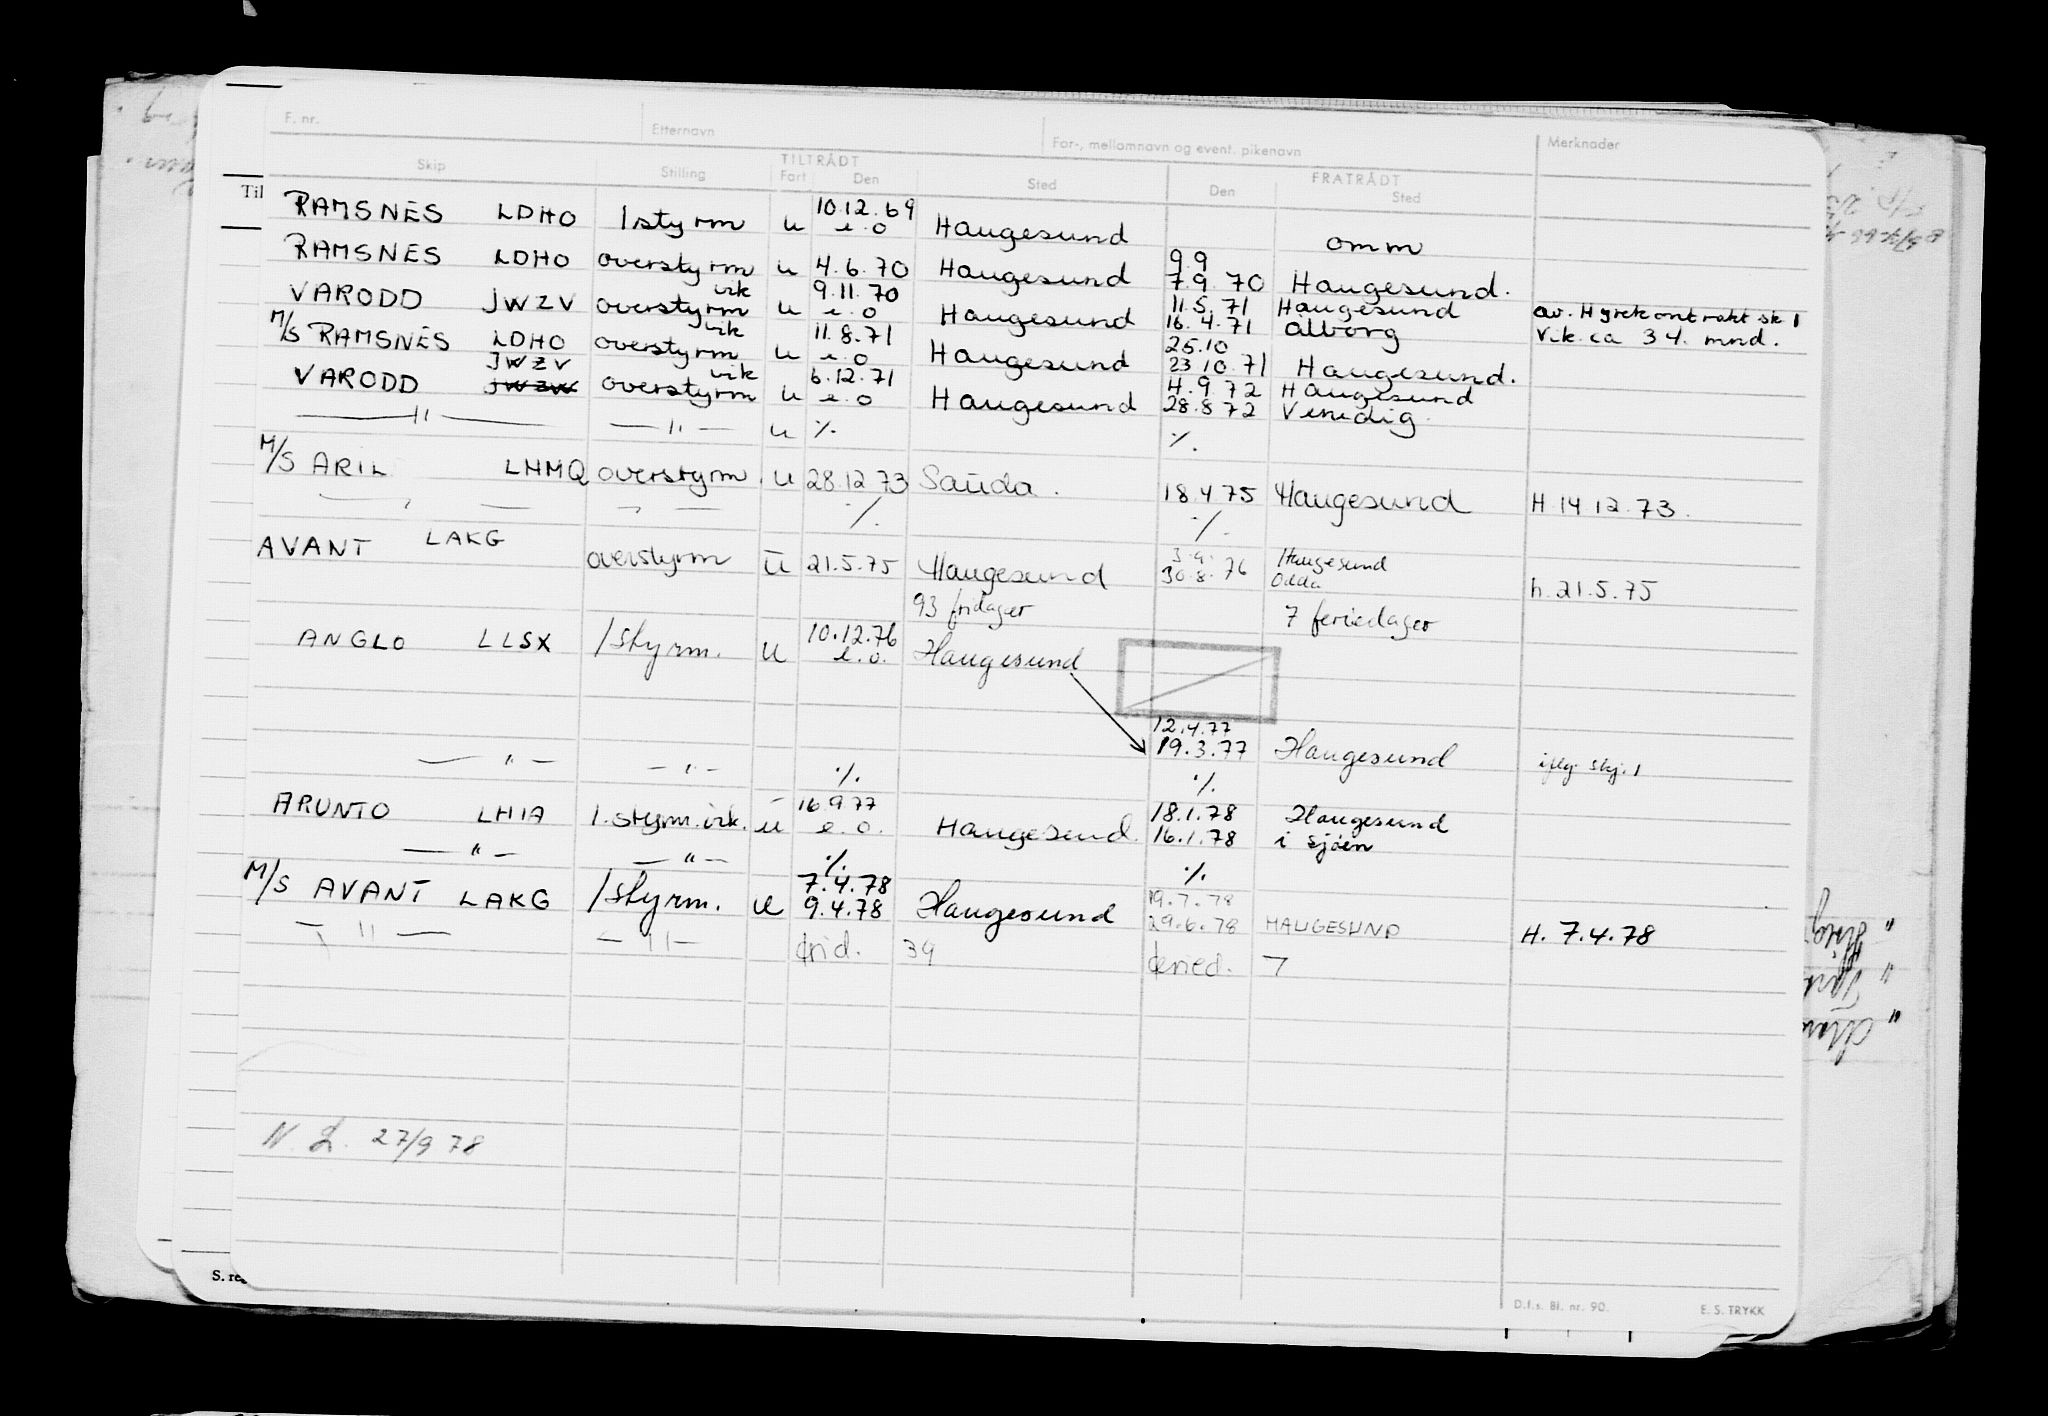 F. nr. Etternavn For-, mellomnavn og event. pikenavn Merknader
TILTRÅDT FRATRÅDT
Skip Stilling Fart Den Sted Den Sted
Til
10.12.69
RAMSNES LDHO 1styrm u e.o Haugesund omm
9.9
RAMSNES LDHO overstyrm u 4.6.70 Haugesund 7.9.70 Haugesund.
vik 9.11.70 11.5.71 Haugesund av. Hyrekontrakt sk 1
VARODD JWZV overstyrm u e.o Haugesund 16.4.71 Ålborg Vik. ca 3 4. mnd.
vik 11.8.71 25.10
M/S RAMSNES LDHO overstyrm u e.o Haugesund 23 10.71 Haugesund.
JWZV vik 6.12.71 4.9.72 Haugesund
VARODD JWZW overstyrm u e.o Haugesund 28.8.72 Venedig.
— " — — " — u ./. ./.
M/S ARIL LHMQ overstyrm. u 28.12.73 Sauda. 18.4.75 Haugesund H 14.12.73.
./. ./.
LAKG 3.9. Haugesund
AVANT overstyrm u 21.5.75 Haugesund 30.8.76 Odda h. 21.5.75
93 fridager 7 feriedager
10.12.76
ANGLO LLSX 1styrm. u e.o. Haugesund
12.4.77
19.3.77 Haugesund iflg. skj. 1
— " — — " — ./. ./.
16.9.77 18.1.78 Haugesund
ARUNTO LHIA 1.styrm.vik. u e.o. Haugesund. 16.1.78 i sjøen
— " — — " — ./. ./.
7.4.78 19.7.78
M/S AVANT LAKG 1styrm. u 9.4.78 Haugesund 29.6.78 HAUGESUND H. 7.4.78
— " — — " — frid. 39 feried. 7
N. L. 27/9 78
S. re
D.f.s. Bl. nr. 90. E. S. TRYKK